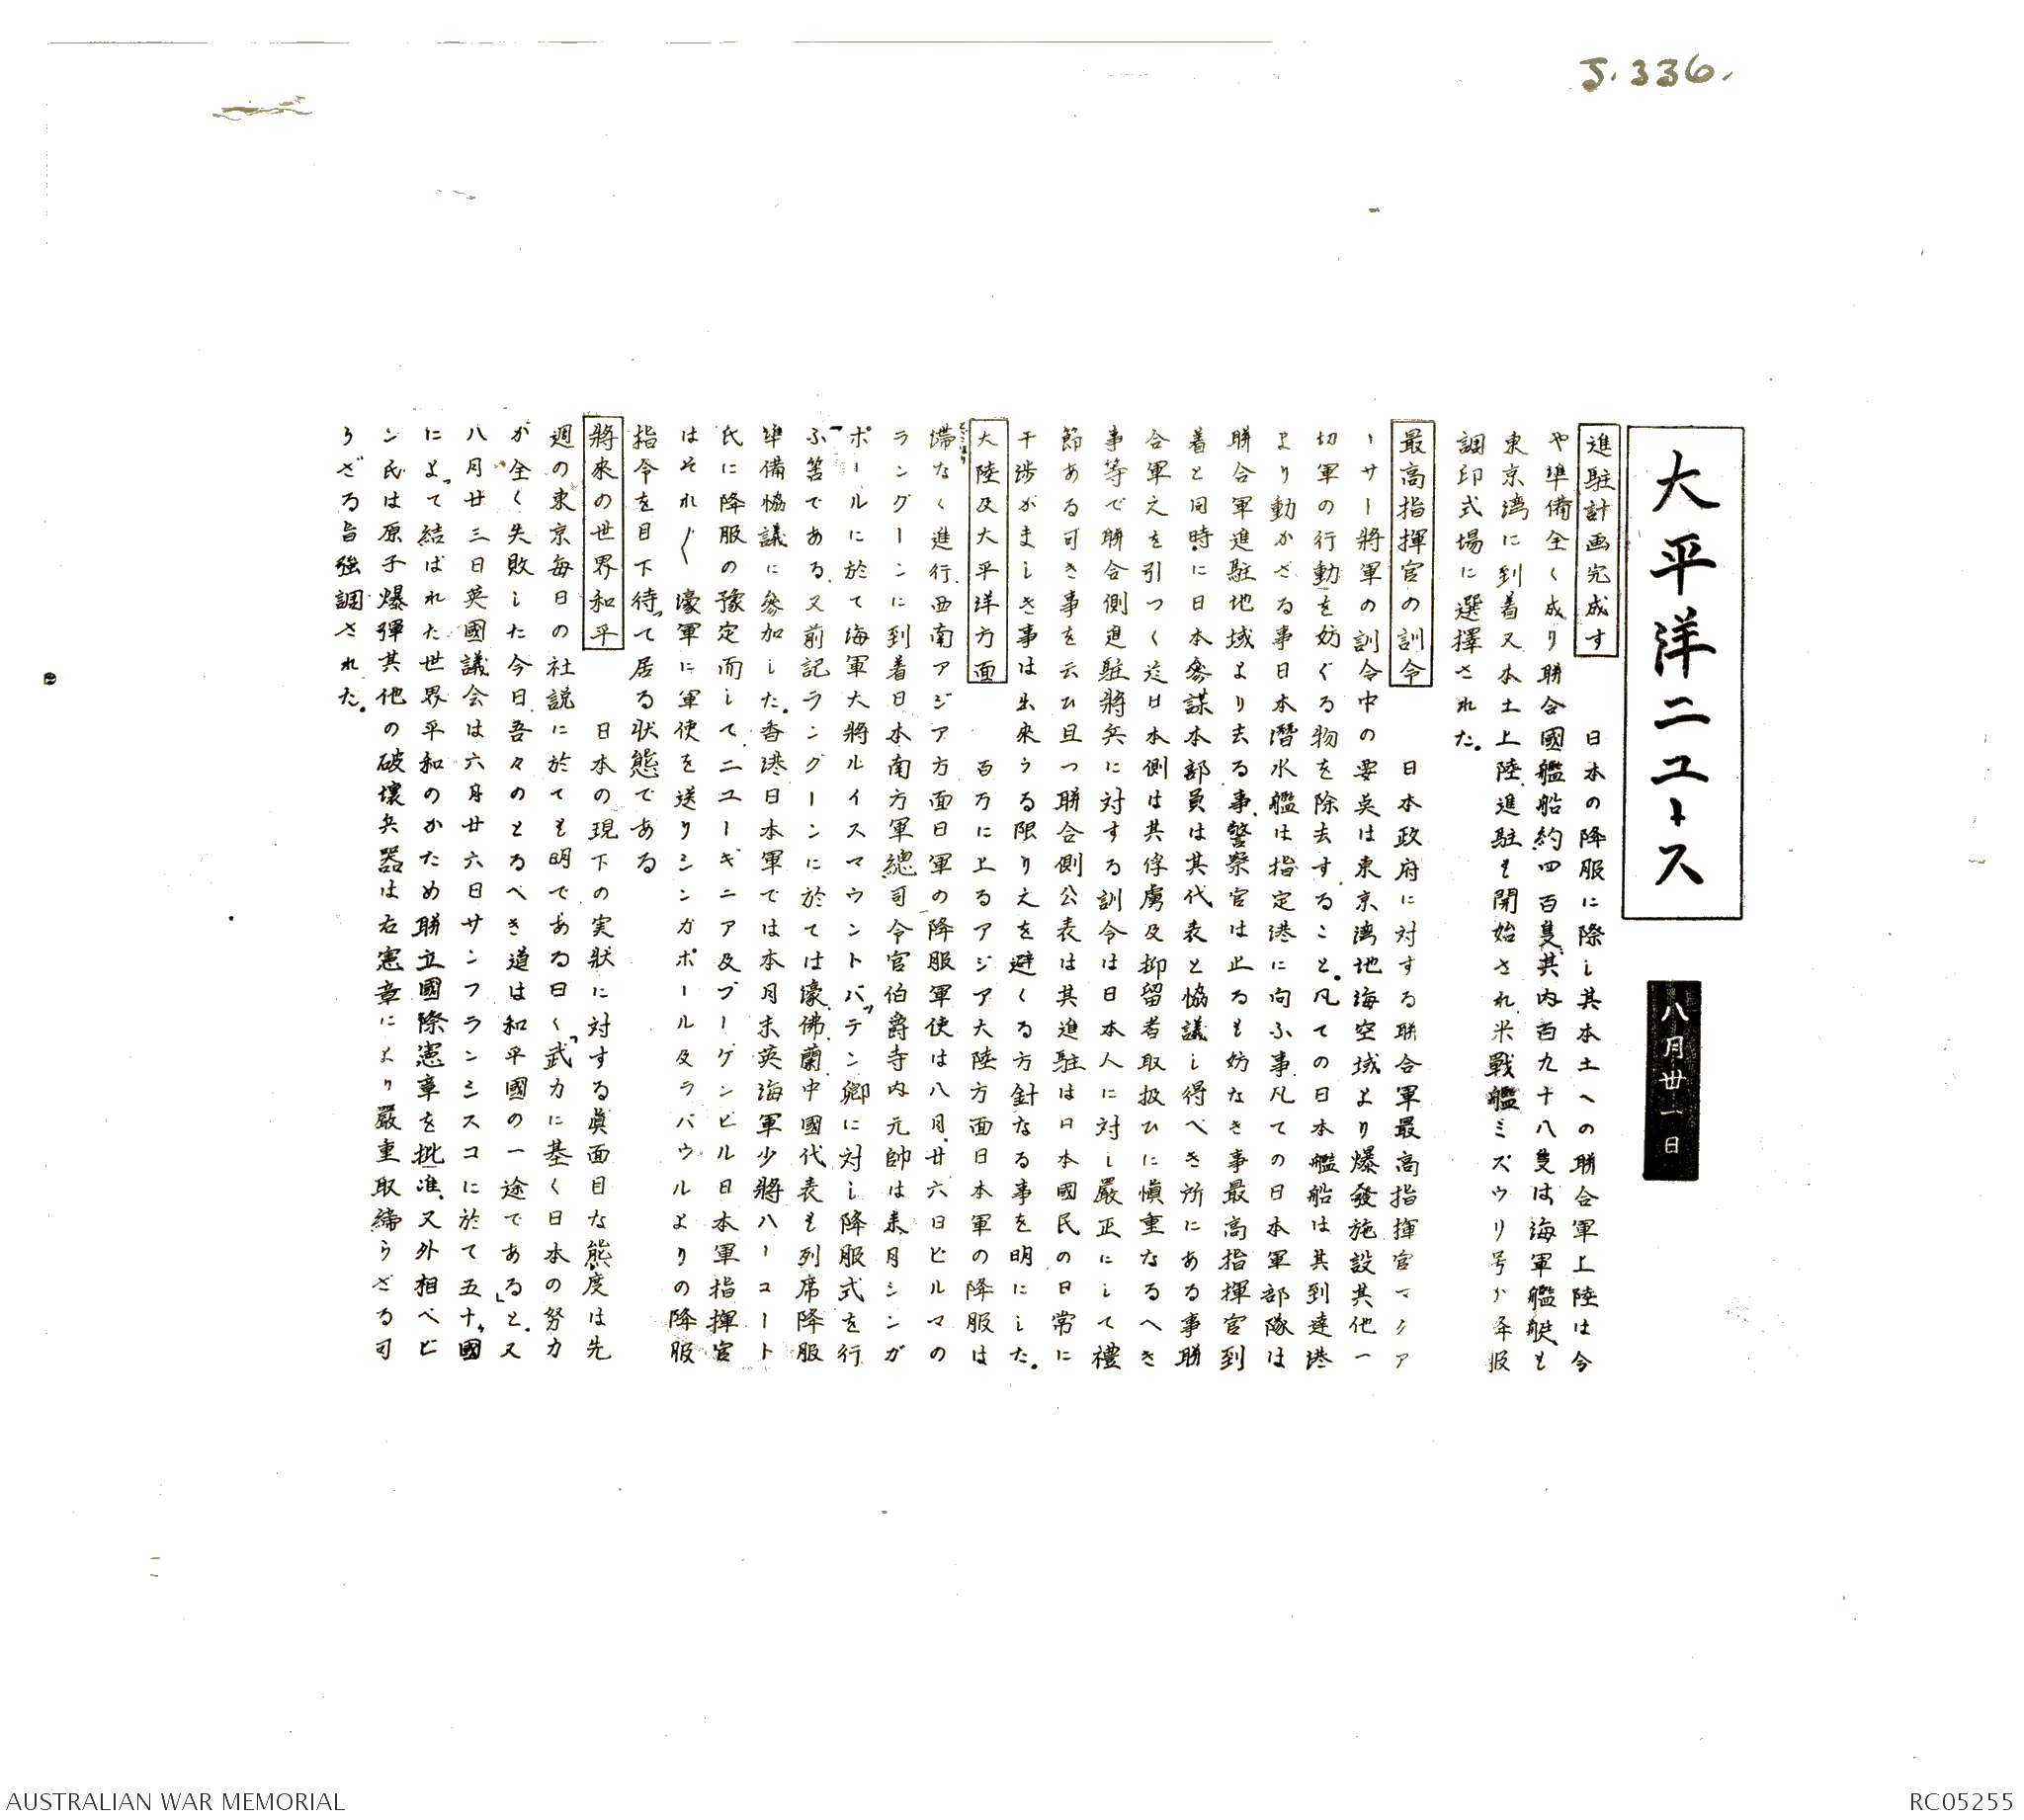 J.336.
大平洋ニユース
八月丗一日
進駐計画完成す　日本の降服に際し其本土への聯合軍上陸は今
や準備全く成り聯合國艦船約四百隻其内百九十八隻は海軍艦艇も
東京湾に到着又本土上陸、進駐も開始され米戰艦ミズウリ号か降服
調印式場に選擇された。
最高指揮官の訓令　日本政府に対する聯合軍最高指揮官マクア
ーサー將軍の訓令中の要点は東京湾地海空域より爆發施設其他一
切軍の行動を妨ぐる物を除去すること。凡ての日本艦船は其到達港
より動かざる事日本潛水艦は指定港に向ふ事凡ての日本軍部隊は
聯合軍進駐地域より去る事、警察官は止るも妨なき事最高指揮官到
着と同時に日本參謀本部員は其代表と協議し得べき所にある事聯
合軍之を引つく迄日本側は其俘虜及抑留者取扱ひに愼重なるへき
事等で聯合側進駐將兵に対する訓令は日本人に対し嚴正にして禮
節ある可き事を云ひ且つ聯合側公表は其進駐は日本國民の日常に
干渉がましき事は出來うる限り之を避くる方針なる事を明にした。
大陸及大平洋方面　百万に上るアジア大陸方面日本軍の降服は
滯なく進行、西南アジア方面日軍の降服軍使は八月廿六日ビルマの
ラングーンに到着日本南方軍總司令官伯爵寺内元帥は来月シンガ
ポールに於て海軍大將ルイスマウントバッテン卿に対し降服式を行
ふ筈である、又前記ラングーンに於ては濠、佛、蘭、中國代表も列席降服
準備協議に參加した。香港日本軍では本月末英海軍少將ハーコート
氏に降服の豫定而して、ニユーギニア及ブーゲンビル日本軍指揮官
はそれ〲濠軍に軍使を送りシンガポール及ラバウルよりの降服
指令を目下待って居る状態である
將來の世界和平　日本の現下の実狀に対する眞面目な態度は先
週の東京毎日の社説に於ても明である曰く「武力に基く日本の努力
が全く失敗した今日、吾々のとるべき道は和平國の一途である」と。又
八月廿三日英國議会は六月廿六日サンフランシスコに於て五十ヶ國
によって結ばれた世界平和のかため聯立國際憲章を批准、又外相ベビ
ン氏は原子爆弾其他の破壊兵器は右憲章により嚴重取締らざる可
らざる旨強調された。
AUSTRALIAN WAR MEMORIAL
RC05255